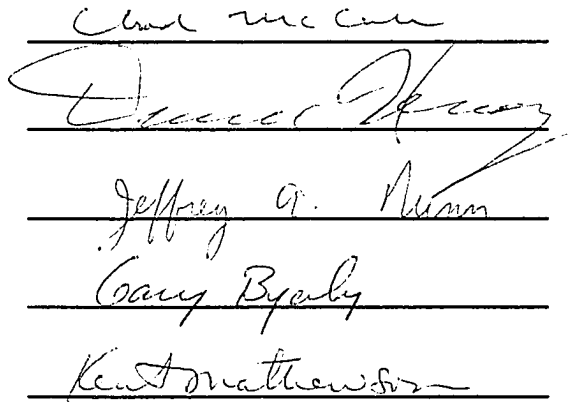 Chad McCain
Jeffrey A. Nunn
Gary Byerly
Kent Mathewson